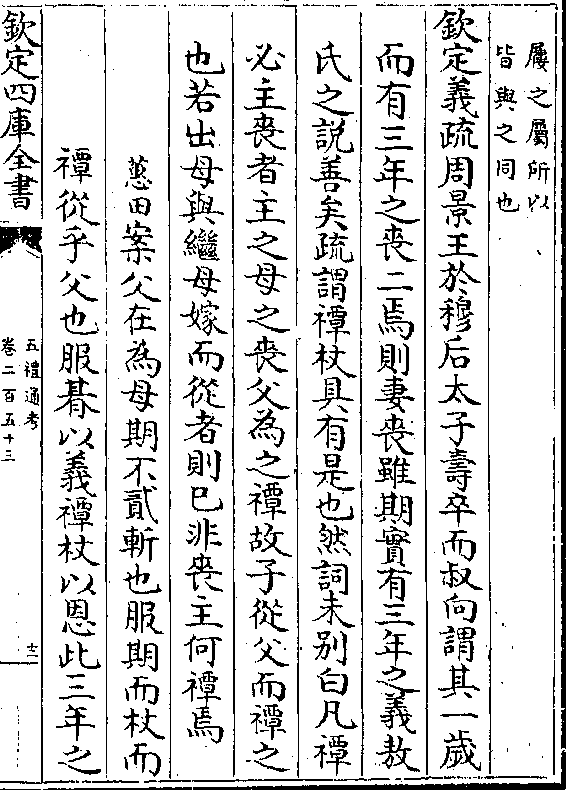 屨之屬所以
皆與之同也
欽定義疏周景王於穆后太子壽卒而叔向謂其一歲
而有三年之喪二焉則妻喪雖期實有三年之義敖
氏之説善矣疏謂禫杖具有是也然詞未别白凡禫
必主喪者主之母之喪父為之禫故子從父而禫之
也若出母與繼母嫁而從者則已非喪主何禫焉
蕙田案父在為母期不貳斬也服期而杖而
禫從乎父也服朞以義禫杖以恩此三年之
欽定四庫全書
五禮通考
卷二百五十三
十二